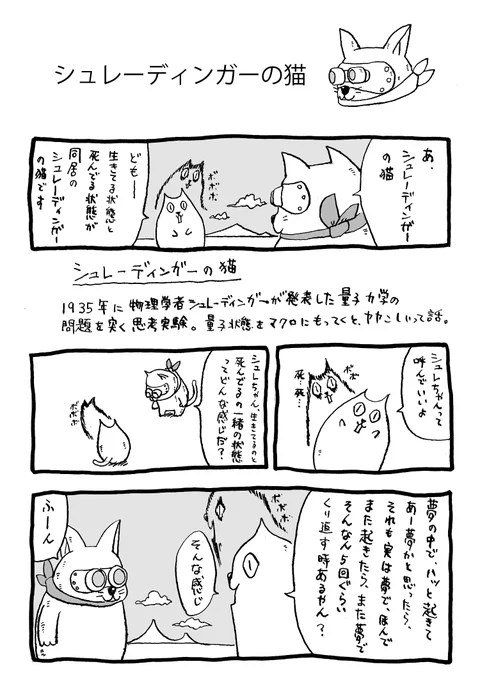 シュレーディンガーの猫
あ、
シュレーディンガー
の猫
ボボボ
どもー
生きてる状態と
死んでる状態が
同居の
シュレーディンガー
の猫です
シュレーディンガーの猫
1935年に物理学者シュレーディンガーが発表した量子力学の
問題を突く思考実験。量子状態をマクロにもってくと、ヤヤこしいって話。
シュレちゃんって
呼んでいいよ
ボボボ
死…死…
シュレちゃん、生きてるのと
死んでるの一緒の状態
ってどんな感じだ？
ボボボ
夢の中で、ハッと起きて
あー夢かと思ったら、
それも実は夢で、ほんで
また起きたら、また夢で
そんなん5回ぐらい
くり返す時あるやん？
ボボボ
そんな感じ
ふーん